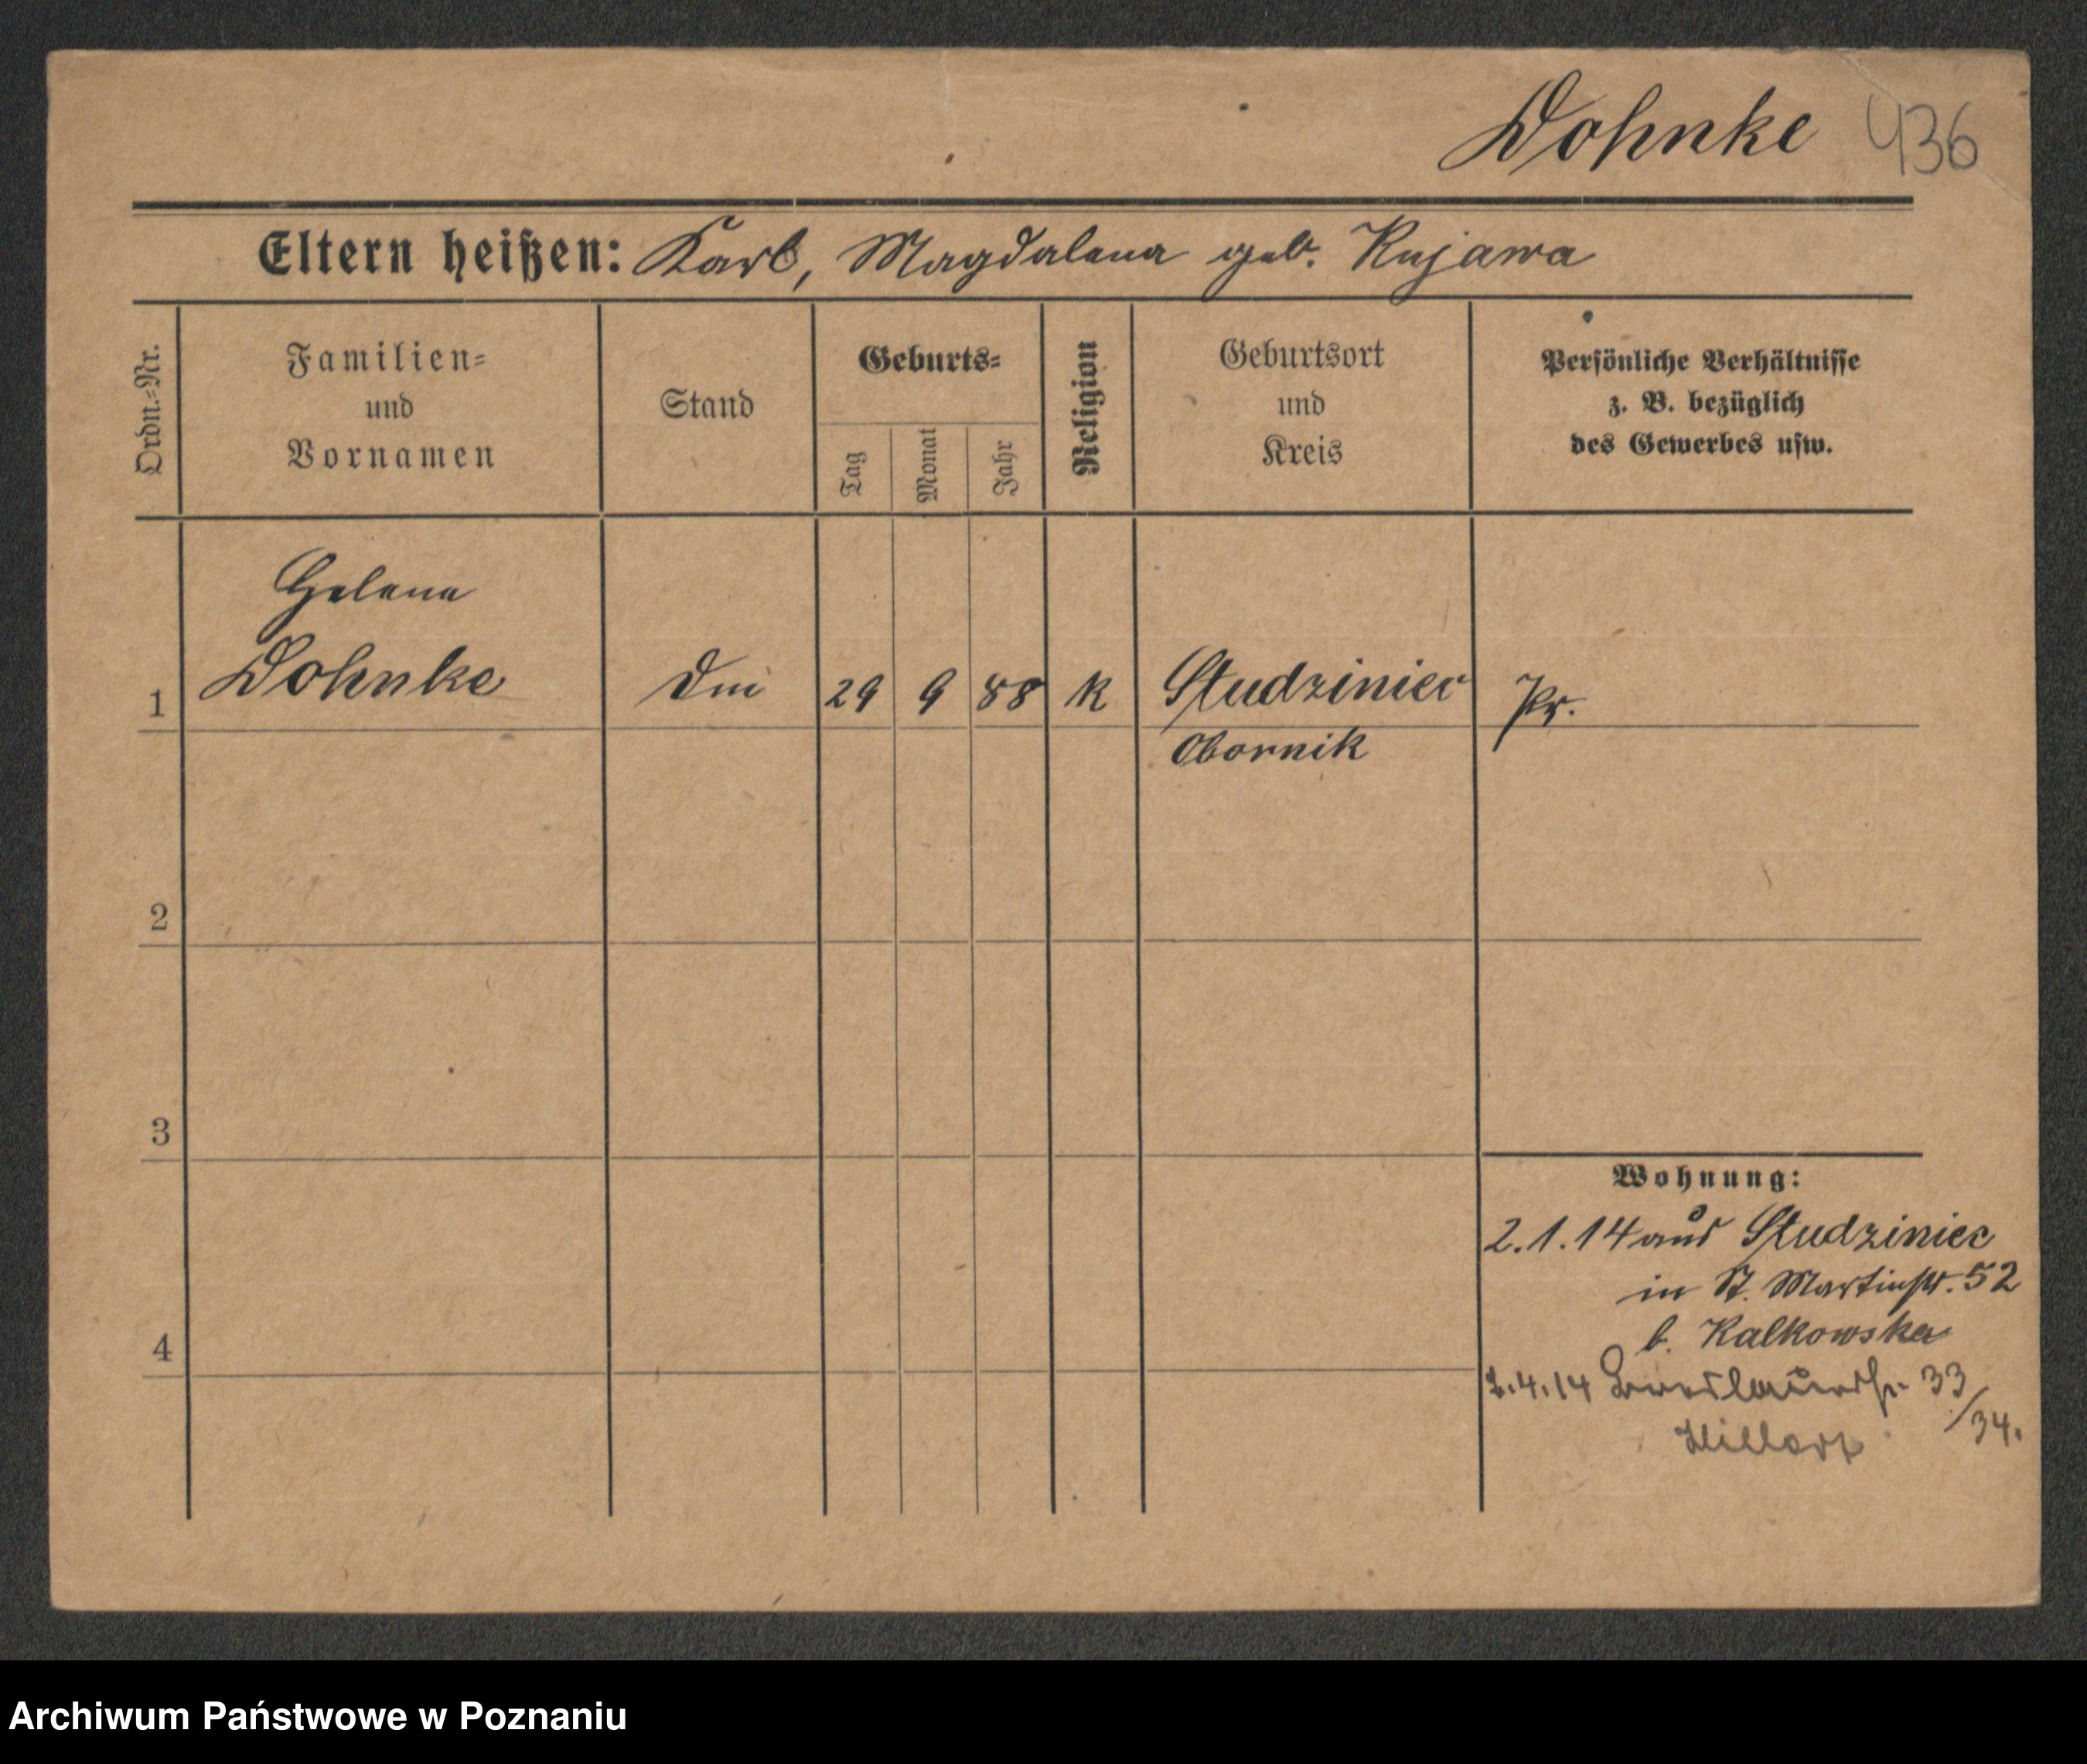 Dohnke 436
Eltern heißen: Karl, Magdalena geb. Kujawa
Ordn.=Nr.
Familien=
und
Vornamen
Stand
Geburts=
Tag
Monat
Jahr
Religion
Geburtsort
und
Kreis
Persönliche Verhältnisse
z. B. bezüglich
des Gewerbes usw.
Helena
1 Dohnke 29 9 88 k Studziniec Pr.
Obornik
2
3
4
Wohnung:
2.1.14 aus Studziniec
in St. Martinstr. 52
b. Kalkowska
4.14 Breslauerstr. 33
/34.
Archiwum Państwowe w Poznaniu